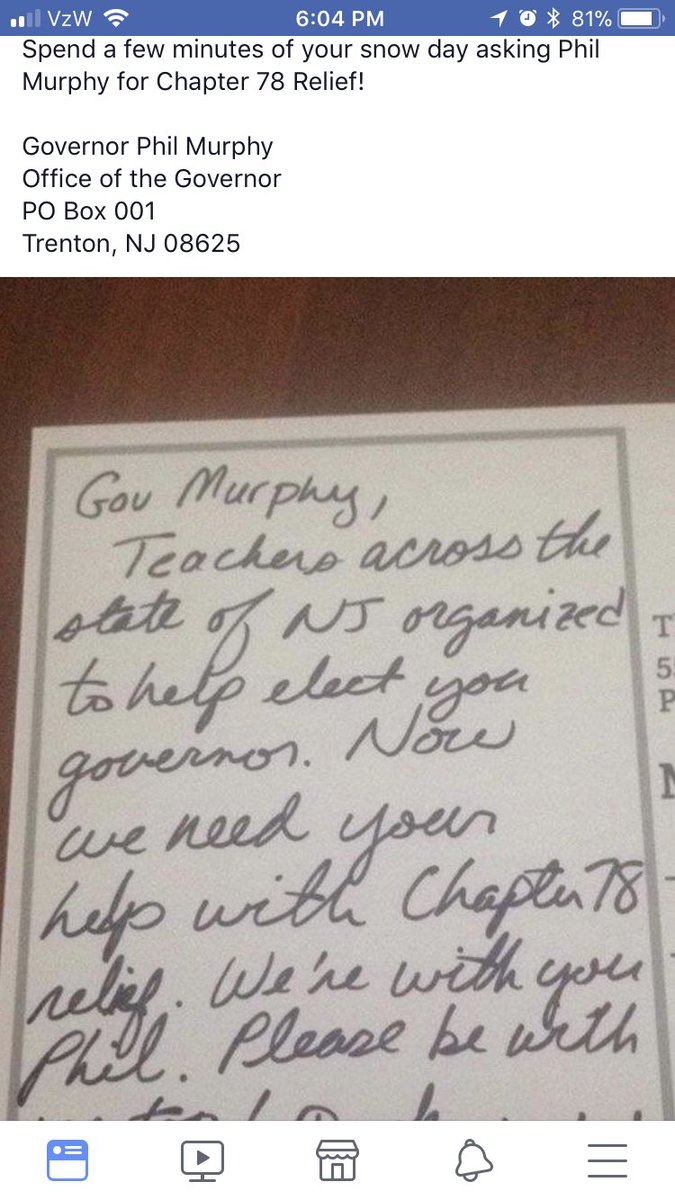 VzW 6:04 PM 81%
Spend a few minutes of your snow day asking Phil
Murphy for Chapter 78 Relief!
Governor Phil Murphy
Office of the Governor
PO Box 001
Trenton, NJ 08625
Gov Murphy,
Teachers across the
state of NJ organized
to help elect you
governor. Now
we need your
help with Chapter 78
relief. We're with you
Phil. Please be with
T
5
P